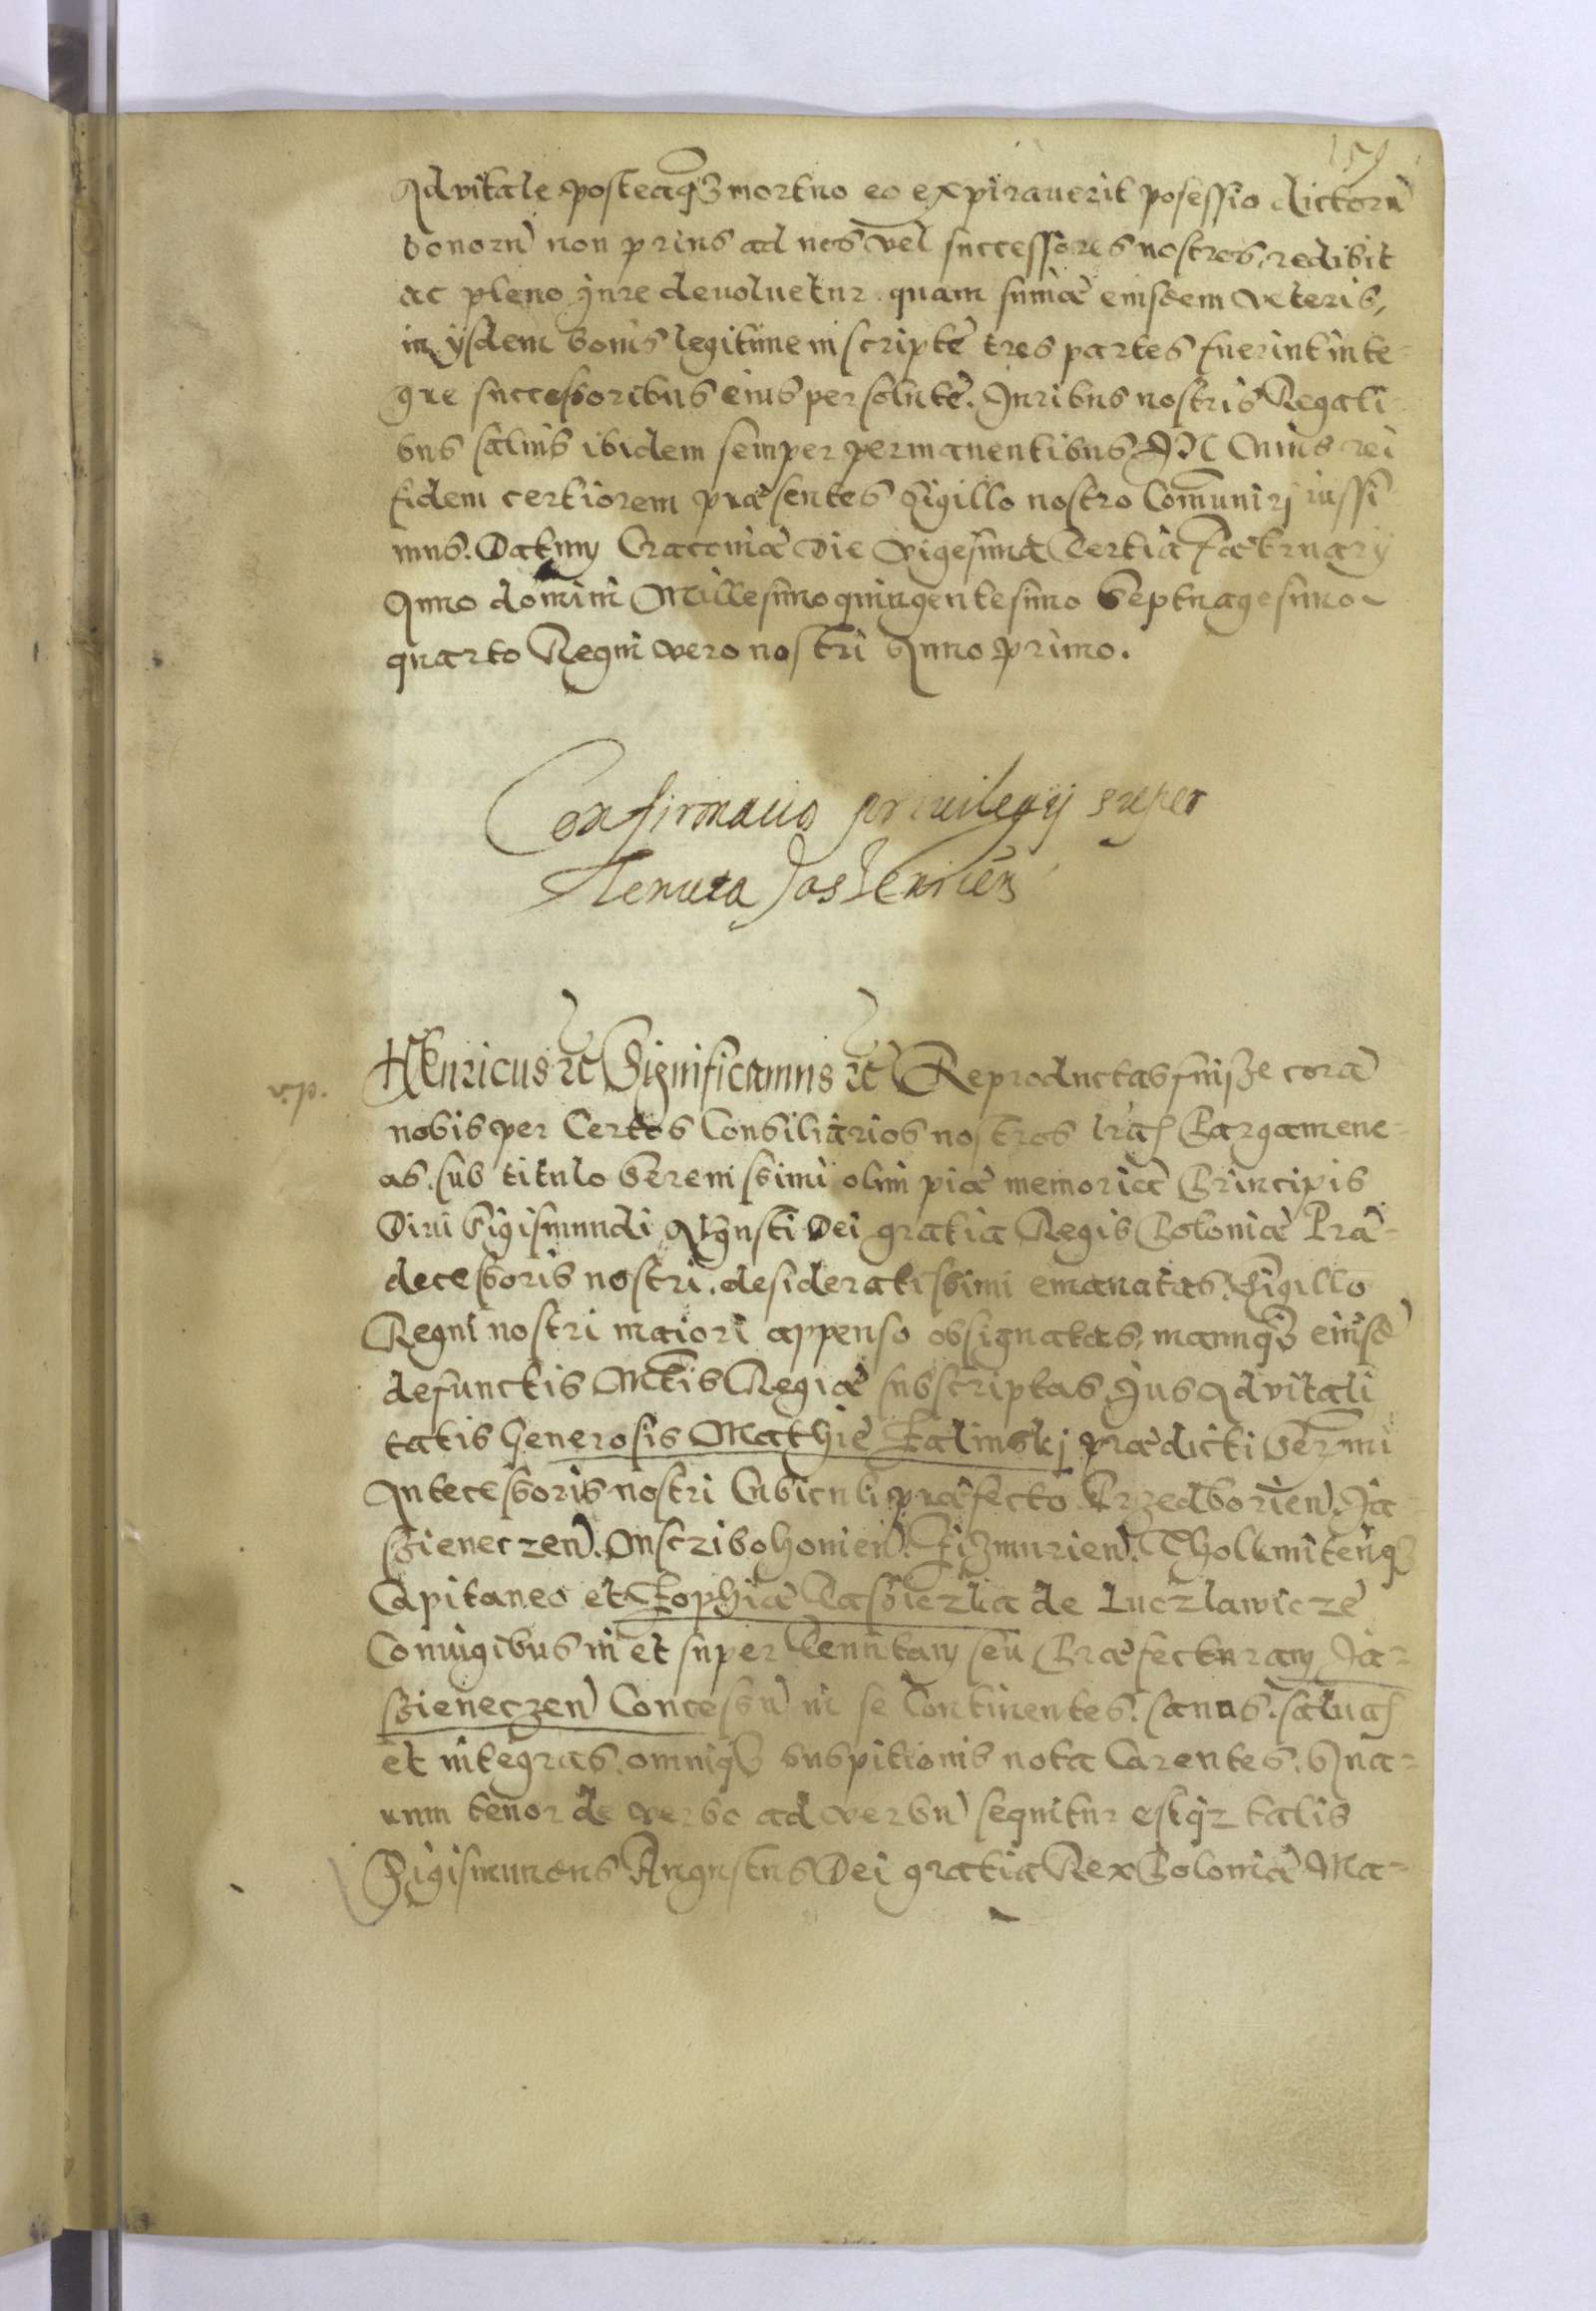 159
Advitale posteaq3 mortuo eo expirauerit posessio dictorũ
bonorũ non prius ad nos vel successores nostros, redibit
ac pleno Jure deuoluetur. quam sũmæ eiusdem veteris,
in ijsdem bonis legitime inscriptę tres partes fuerint inte-
gre successoribus eius persolutę. Juribus nostris Regali
bus saluis ibidem semper permanentibus. IN Cuius rei
fidem certiorem præsentes Sigillo nostro Com̃unirj iussi
mus. Datum Cracouiæ Die Vigesima Tertia Fæbruarij
Anno domini Millesimo quingentesimo Septuagesimo
quarto Regni vero nostri Anno primo.
Confirmatio priuilegij super
Tenuta Jastenicen̄
v.p.
HEnricus ꝛc Significamus ꝛc Reproductas fuisse corã
nobis per Certos Consiliarios nostros lrãs Pargamene-
as. sub titulo Serenissimi olim piæ memoriæ Principis
Diui Sigismundi Augusti Dei gratia Regis Poloniæ Præ-
decessoris nostri. desideratissimi emanatas. Sigillo
Regni nostri maiori appenso obsignatas, manuq3 eiusdẽ
defunctis Mtis Regiæ subscriptas Jus Advitali
tatis Generosis Mathię Zalinskj prædicti Serm̃i
Antecessoris nostri Cubiculi præfecto Przedborien̄. Ja-
szieneczen̄. Mscribohonien̄. Zizmurien̄. Tholkmitenq3
Capitaneo et Zophiæ Tassiczka de Luczlawicze
Coniugibus in et super Tenutam seu Præfecturam Ja-
szieneczen̄ Concessũ in se Continentes. sanas. saluas
et integras. omniq3 suspitionis nota Carentes. Qua-
rum tenor de verbo ad verbũ sequitur estq3 talis
Sigismundus Augustus Dei gratia Rex Poloniæ Ma-